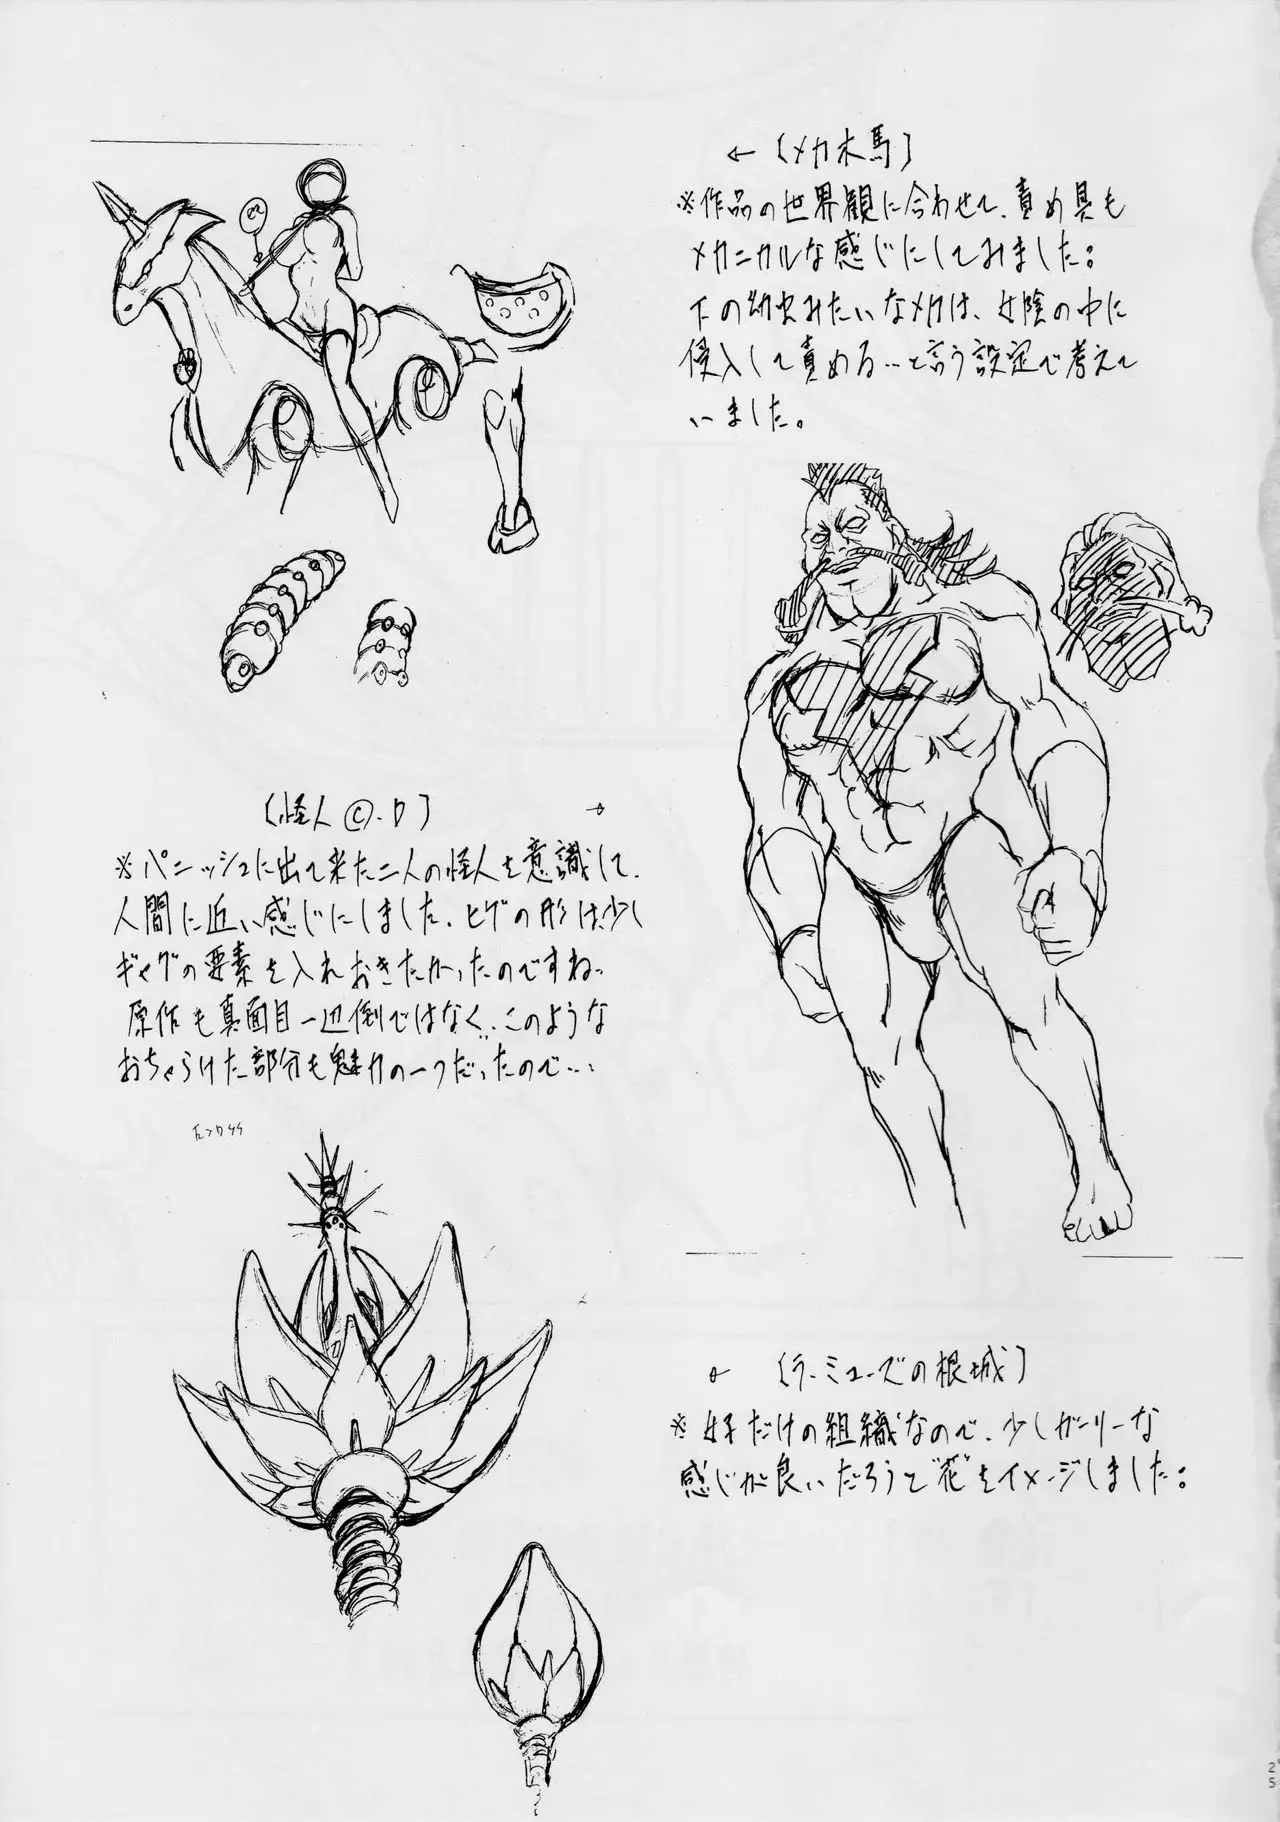 ←〔メカ木馬〕
※作品の世界観に合わせて、責め具も
メカニカルな感じにしてみました。
下の幼虫みたいなメカは、女陰の中に
侵入して責める‥と言う設定で考えて
いました。
〔怪人©.D〕→
※パニッシュに出て来た二人の怪人を意識して、
人間に近い感じにしました。ヒゲの形は、少し
ギャグの要素を入れおきたかったのですね‥
原作も真面目一辺倒ではなく‥このような
おちゃらけた部分も魅力の一つだったので…
←〔ラ・ミューズの根城〕
※女子だけの組織なので、少しガーリーな
感じが良いだろうと“花”をイメージしました。
25